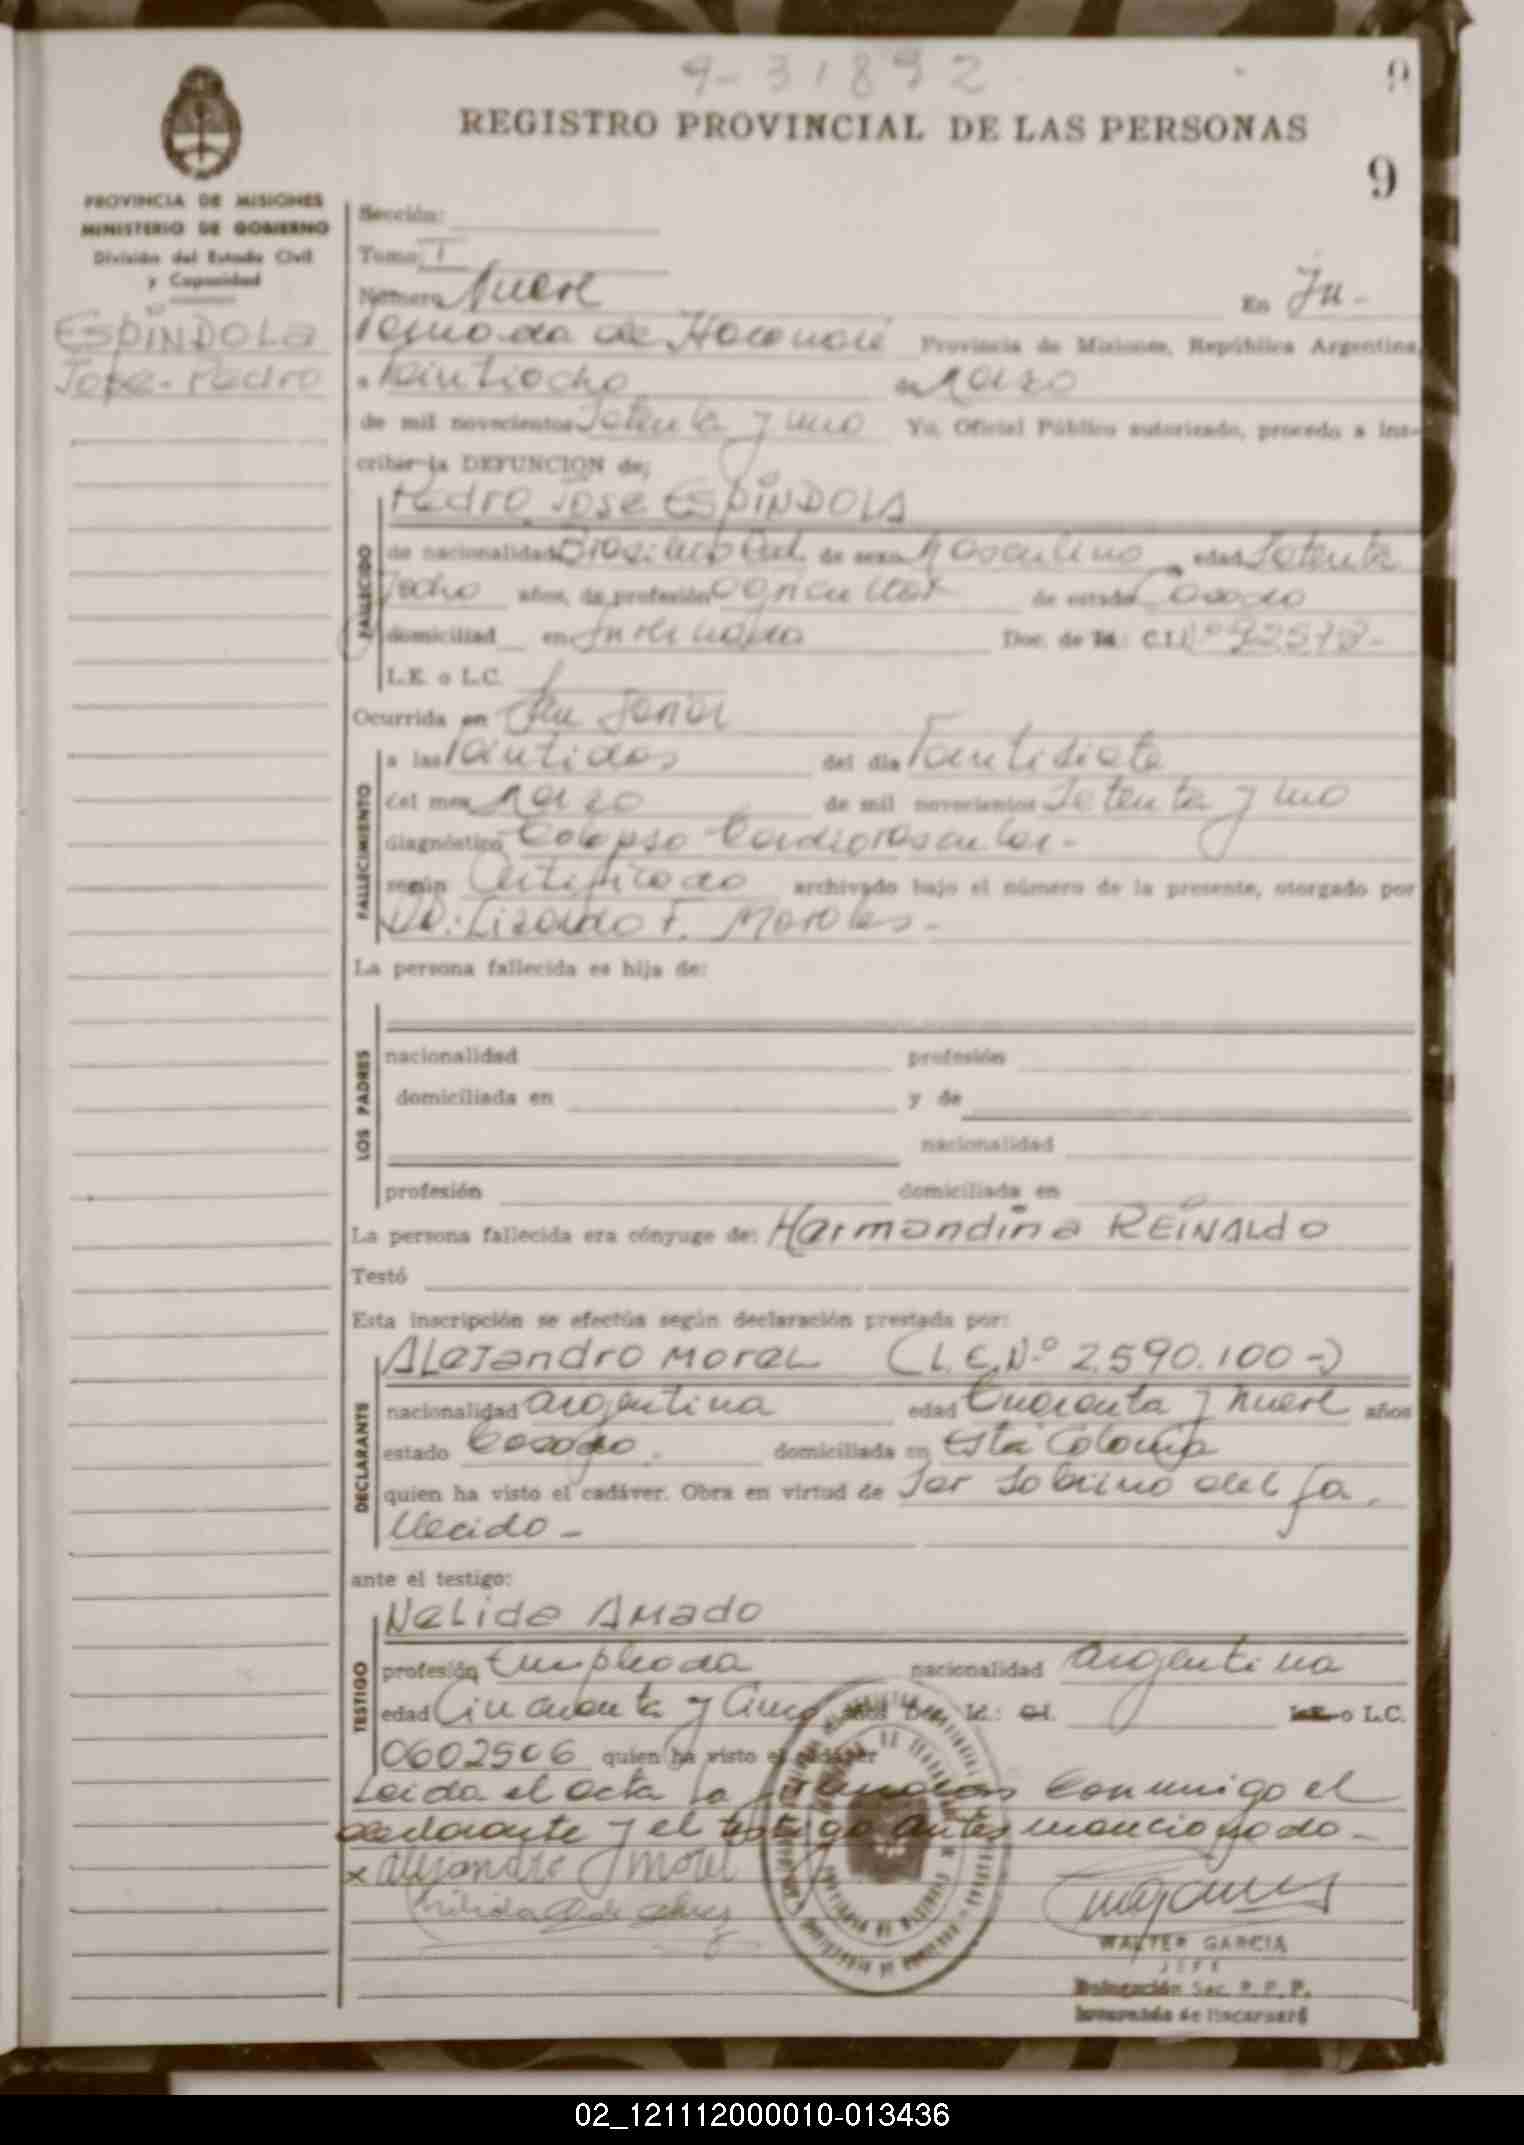 9-31892
9
REGISTRO PROVINCIAL DE LAS PERSONAS
9
PROVINCIA DE MISIONES
MINISTERIO DE GOBIERNO
División del Estado Civil
y Capacidad
ESPÍNDOLA
José-Pedro
Sección:
Tomo: 1
Número Nueve En In-
de Provincia de Misiones, República Argentina,
a veintiocho Marzo
de mil novecientos Setenta y uno Yo, Oficial Público autorizado, procedo a ins-
cribir la DEFUNCION de:
Pedro José ESPÍNDOLA
FALLECIDO
de nacionalidad de sexo Masculino edad Setenta
y ocho años, de profesión agricultor de estado Casado
domiciliad en Doc. de Id.: C.I.
L.E. o L.C.
Ocurrida en
FALLECIMIENTO
a las veintidos del día Veintisiete
del mes Marzo de mil novecientos Setenta y uno
diagnóstico Colapso Cardiovascular-
según Certificado archivado bajo el número de la presente, otorgado por
DR. Lizardo F. Morales-
La persona fallecida es hija de:
LOS PADRES
nacionalidad profesión
domiciliada en y de
nacionalidad
profesión domiciliada en
La persona fallecida era cónyuge de: Harmandina REÍNALDO
Testó
Esta inscripción se efectúa según declaración prestada por:
DECLARANTE
ALEJANDRO MOREL (L.E.Nº 2.590.100-)
nacionalidad argentina edad Cuarenta y nueve años
estado Casado. domiciliada en esta Colonia
quien ha visto el cadáver. Obra en virtud de Ser Sobrino del fa.
llecido-
ante el testigo:
TESTIGO
Nelida Amado
profesión Empleada nacionalidad argentina
edad Cincuenta y Cinco años Doc. Id.: C.I. L.E. o L.C.
0602506 quien ha visto el cadáver
Leida el acta la conmigo el
declarante y el testigo antes mencionado-
x Alejandro Morel
WALTER GARCIA
JEFE
Delegación Sec. R.P.P.
02_121112000010-013436